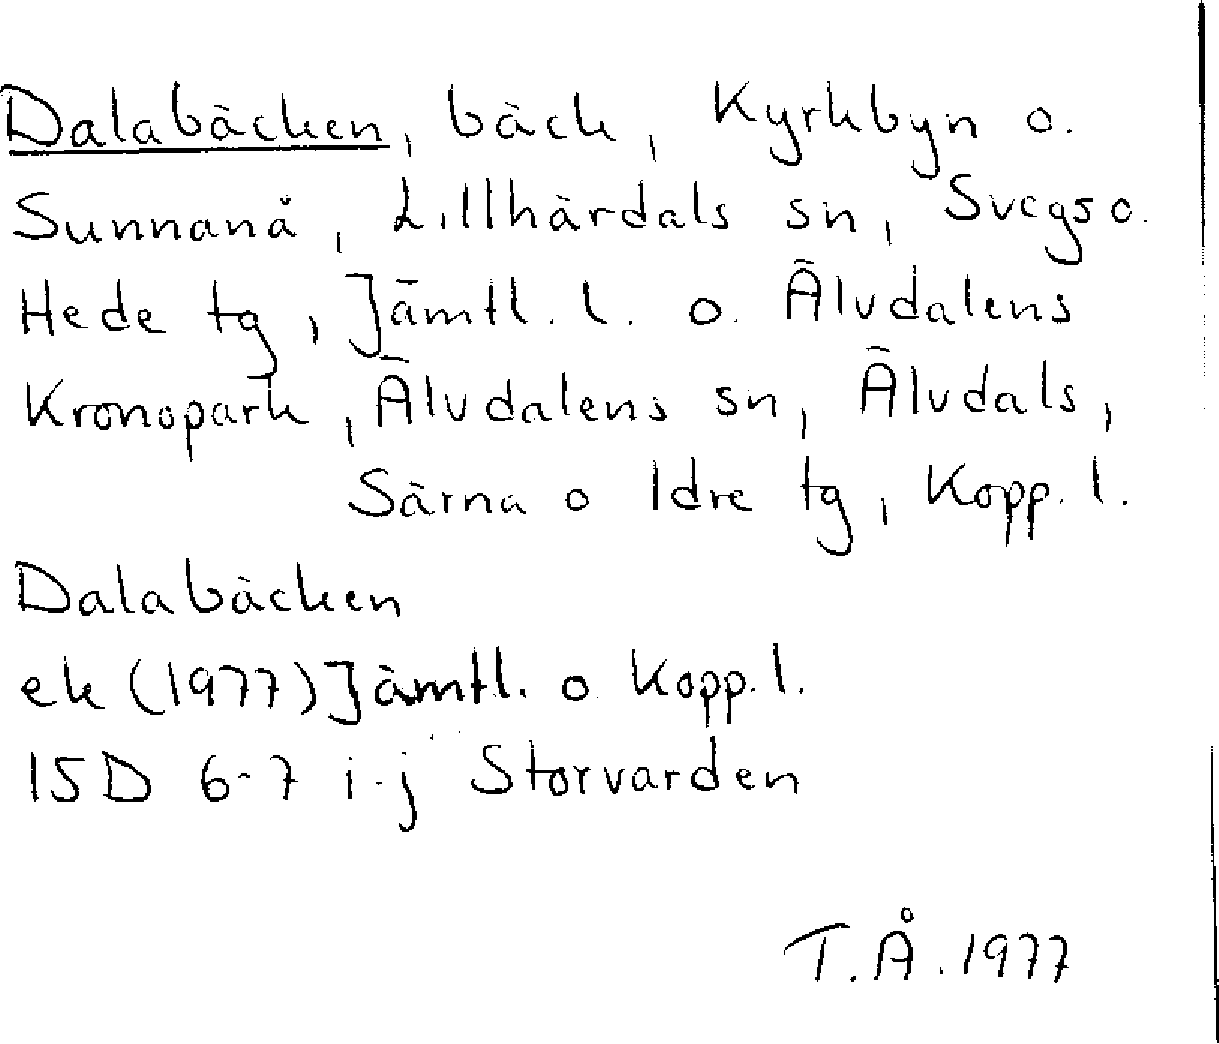 Dalabäcken, bäck, Kyrkbyn o.
Sunnanå, Lillhärdals sn, Svegs o.
Hede tg, Jämtl. l. o. Älvdalens
Kronopark, Älvdalens sn, Älvdals,
Särna o Idre tg, Kopp. l.
Dalabäcken
ek (1977) Jämtl. o Kopp. l.
15D 6-7 i-j Storvarden
T.Å. 1977